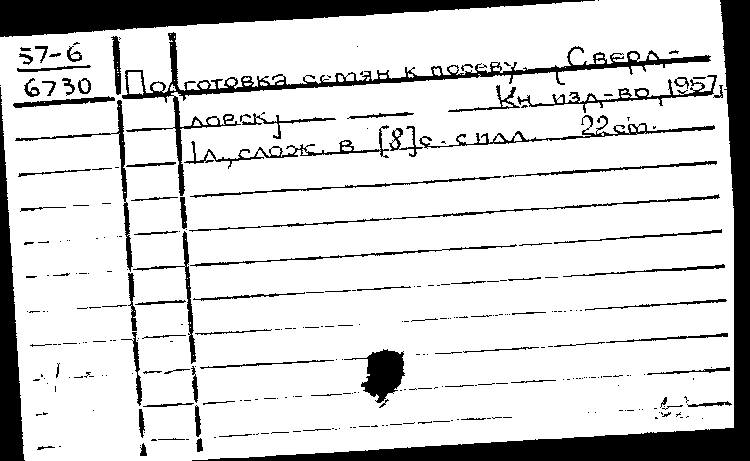 57-6
6730
Подготовка семян к посеву. [Сверд-
ловск] Кн. изд-во, 1957.
1 л., слож. в [8] с. с илл. 22 см.